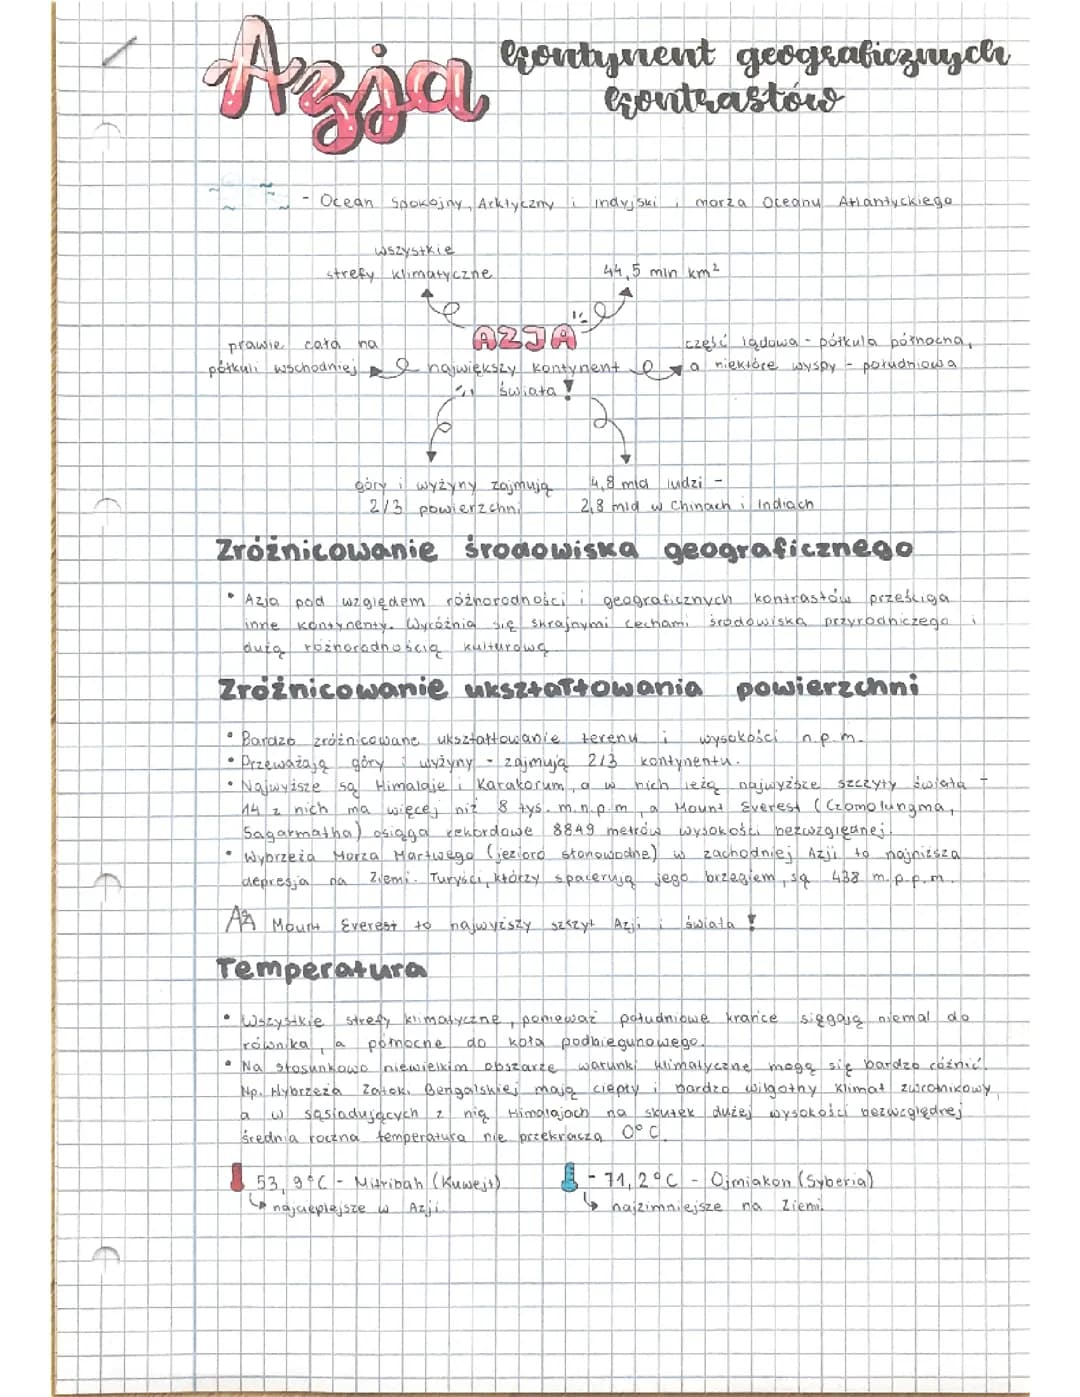 Azja kontynent geograficznych
kontrastów
- Ocean Spokojny, Arktyczny i Indyjski, morza Oceanu Atlantyckiego
wszystkie
strefy klimatyczne
44,5 mln km²
AZJA
prawie cała na
półkuli wschodniej
największy kontynent
świata !
część lądowa - półkula północna,
a niektóre wyspy - południowa
góry i wyżyny zajmują
2/3 powierzchni
4,8 mld ludzi -
2,8 mld w Chinach i Indiach
Zróżnicowanie środowiska geograficznego
• Azja pod względem różnorodności i geograficznych kontrastów prześciga
inne kontynenty. Wyróżnia się skrajnymi cechami środowiska przyrodniczego i
dużą różnorodnością kulturową
Zróżnicowanie ukształtowania powierzchni
• Bardzo zróżnicowane ukształtowanie terenu i wysokości n.p.m.
• Przeważają góry i wyżyny - zajmują 2/3 kontynentu.
• Najwyższe są Himalaje i Karakorum, a w nich leżą najwyższe szczyty świata -
14 z nich ma więcej niż 8 tys. m.n.p.m, a Mount Everest (Czomolungma,
Sagarmatha) osiąga rekordowe 8849 metrów wysokości bezwzględnej.
• Wybrzeża Morza Martwego (jezioro słonowodne) w zachodniej Azji to najniższa
depresja na Ziemi. Turyści, którzy spacerują jego brzegiem, są 438 m.p.p.m.
Mount Everest to najwyższy szczyt Azji i świata !
Temperatura
• Wszystkie strefy klimatyczne, ponieważ południowe krańce sięgają niemal do
równika, a północne do koła podbiegunowego.
• Na stosunkowo niewielkim obszarze warunki klimatyczne mogą się bardzo różnić.
Np. Wybrzeża Zatoki Bengalskiej mają ciepły i bardzo wilgotny klimat zwrotnikowy,
a w sąsiadujących z nią Himalajach na skutek dużej wysokości bezwzględnej
średnia roczna temperatura nie przekracza 0°C.
53,9°C - Mitribah (Kuwejt)
najcieplejsze w Azji
-71,2°C - Ojmiakon (Syberia)
najzimniejsze na Ziemi.